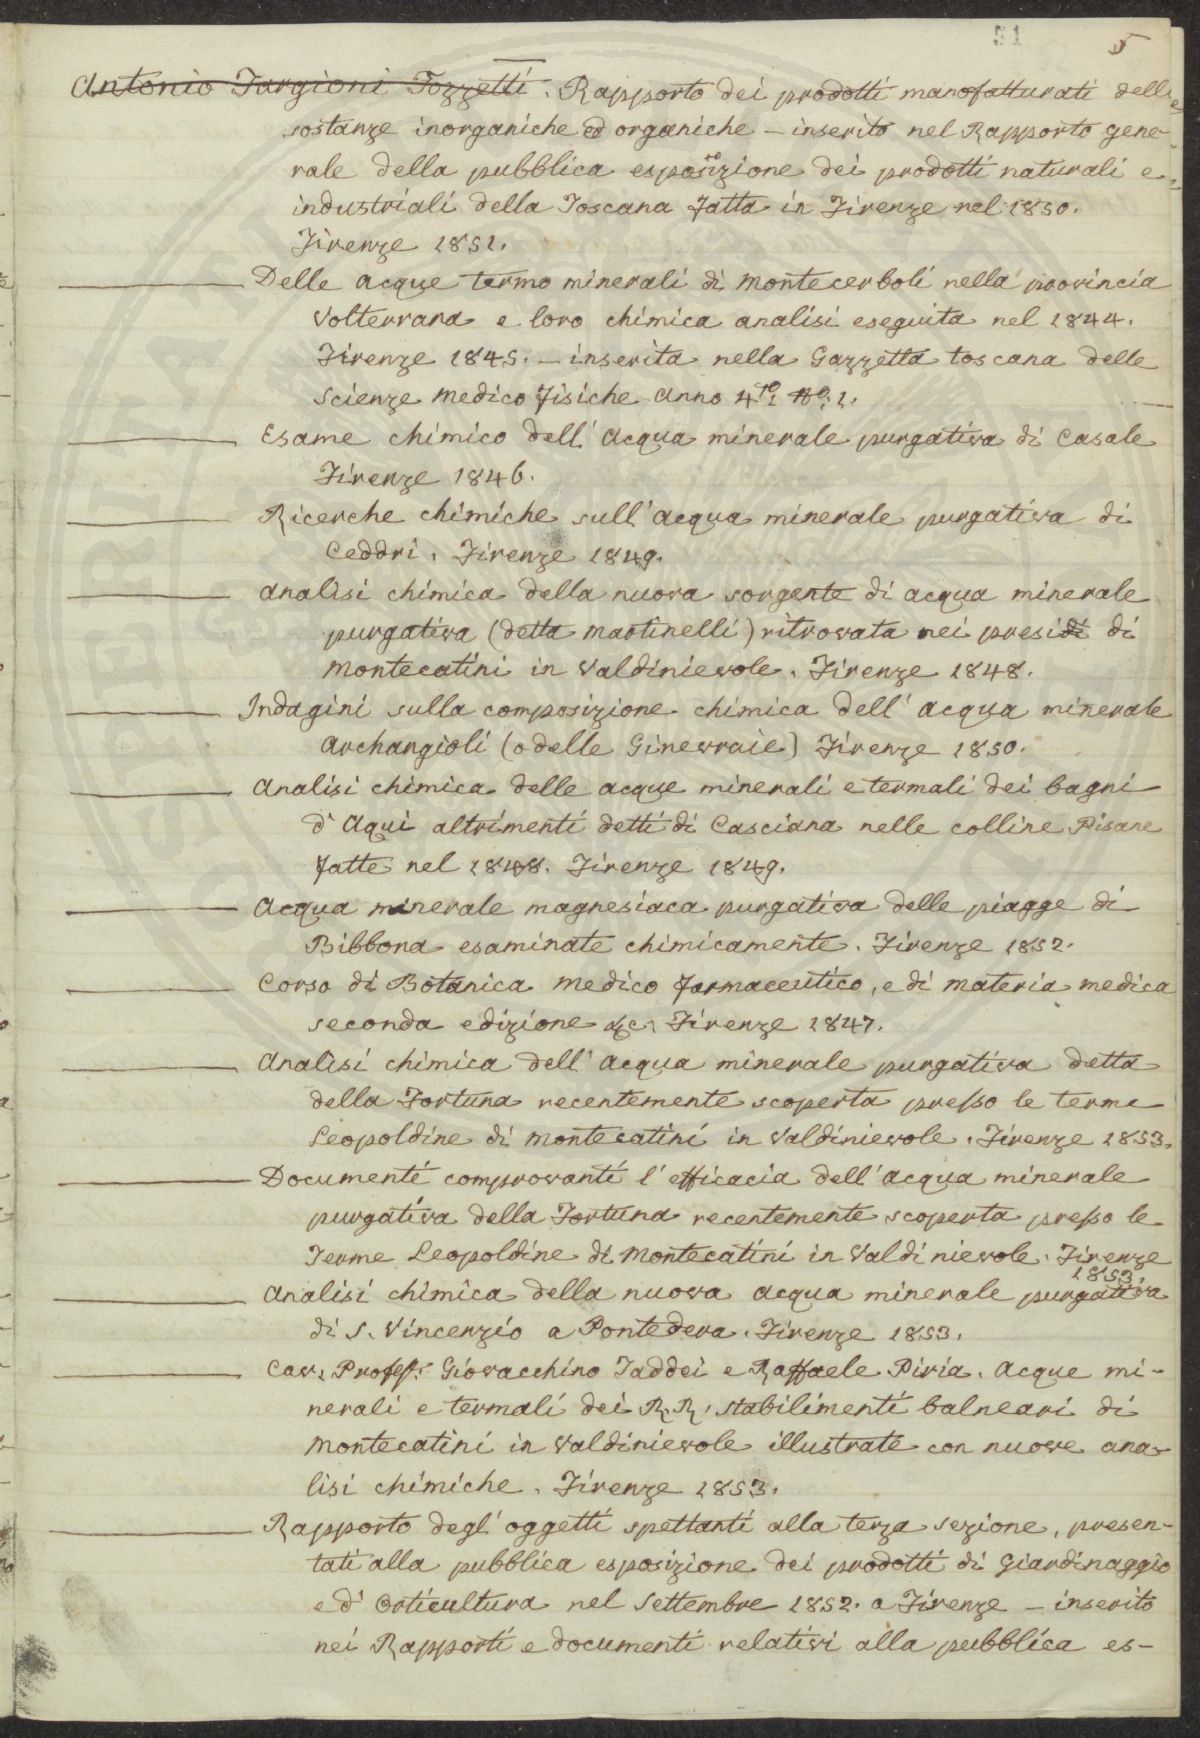 51 5
Antonio Targioni Tozzetti. Rapporto dei prodotti manofatturati delle
sostanze inorganiche ed organiche – inserito nel Rapporto gene-
rale della pubblica esposizione dei prodotti naturali e
industriali della Toscana fatta in Firenze nel 1850.
Firenze 1851.
Delle acque termo minerali di Montecerboli nella provincia
Volterrana e loro chimica analisi eseguita nel 1844.
Firenze 1845. – inserita nella Gazzetta toscana delle
Scienze Medico fisiche Anno 4to. No. 1.
Esame chimico dell' Acqua minerale purgativa di Casale
Firenze 1846.
Ricerche chimiche sull' acqua minerale purgativa di
Ceddri. Firenze 1849.
Analisi chimica della nuova sorgente di acqua minerale
purgativa (detta Martinelli) ritrovata nei presidi di
Montecatini in Valdinievole. Firenze 1848.
Indagini sulla composizione chimica dell' acqua minerale
Archangioli (o delle Ginevraie) Firenze 1850.
Analisi chimica delle acque minerali e termali dei bagni
d' Aqui altrimenti detti di Casciana nelle colline Pisane
fatte nel 1848. Firenze 1849.
Acqua minerale magnesiaca purgativa delle piagge di
Bibbona esaminate chimicamente. Firenze 1852.
Corso di Botanica Medico farmaceutico, e di materia medica
seconda edizione &c. Firenze 1847.
Analisi chimica dell' Acqua minerale purgativa detta
della Fortuna recentemente scoperta presso le terme
Leopoldine di Montecatini in Valdinievole. Firenze 1853.
Documenti comprovanti l' efficacia dell' acqua minerale
purgativa della Fortuna recentemente scoperta presso le
Terme Leopoldine di Montecatini in Valdinievole. Firenze
1853.
Analisi chimica della nuova acqua minerale purgativa
di S. Vincenzio a Pontedera. Firenze 1853.
Cav. Profess. Giovacchino Taddei e Raffaele Piria. Acque mi-
nerali e termali dei R. R. stabilimenti balneari di
Montecatini in Valdinievole illustrate con nuove ana-
lisi chimiche. Firenze 1853.
Rapporto degl' oggetti spettanti alla terza sezione, presen-
tati alla pubblica esposizione dei prodotti di Giardinaggio
e d' Orticultura nel Settembre 1852. a Firenze – inserito
nei Rapporti e documenti relativi alla pubblica es-